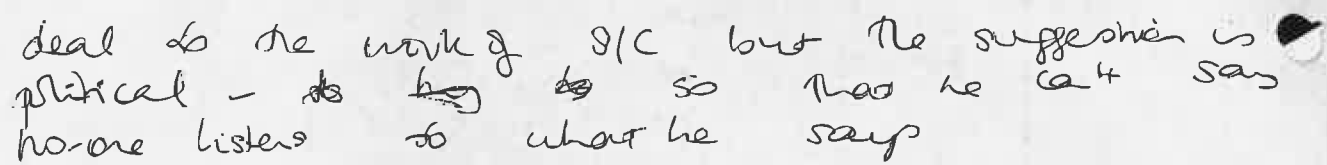 deal to the work of S/C but the suggestion is
political - to hog to so that he can't say
no-one listens to what he says